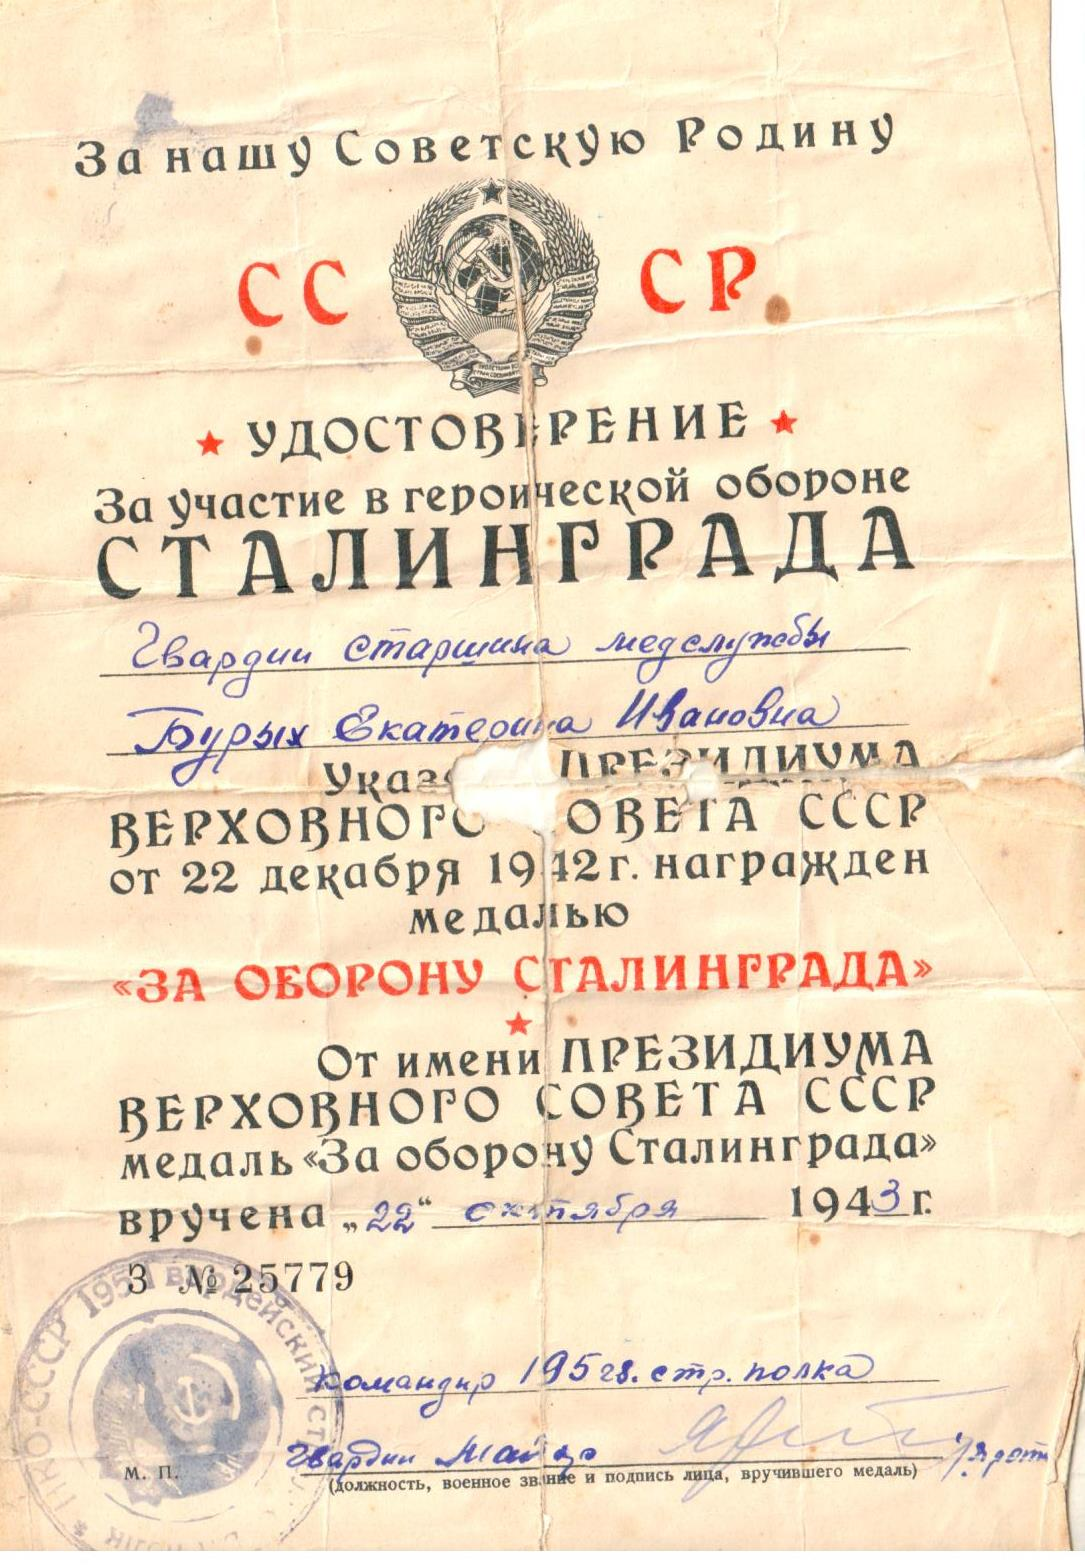 За нашу Советскую Родину
СС СР
УДОСТОВЕРЕНИЕ
За участие в героической обороне
СТАЛИНГРАДА
Гвардии старшина медслужбы
Бурых Екатерина Ивановна
Указо ПРЕЗИДИУМА
ВЕРХОВНОГО СОВЕТА СССР
от 22 декабря 1942 г. награжден
медалью
«ЗА ОБОРОНУ СТАЛИНГРАДА»
От имени ПРЕЗИДИУМА
ВЕРХОВНОГО СОВЕТА СССР
медаль «За оборону Сталинграда»
вручена „22“ октября 1943 г.
З № 25779
НКО-СССР 195 Гвардейский
Командир 195 гв. стр. полка
Гвардии Майор
М. П.
(должность, военное звание и подпись лица, вручившего медаль)